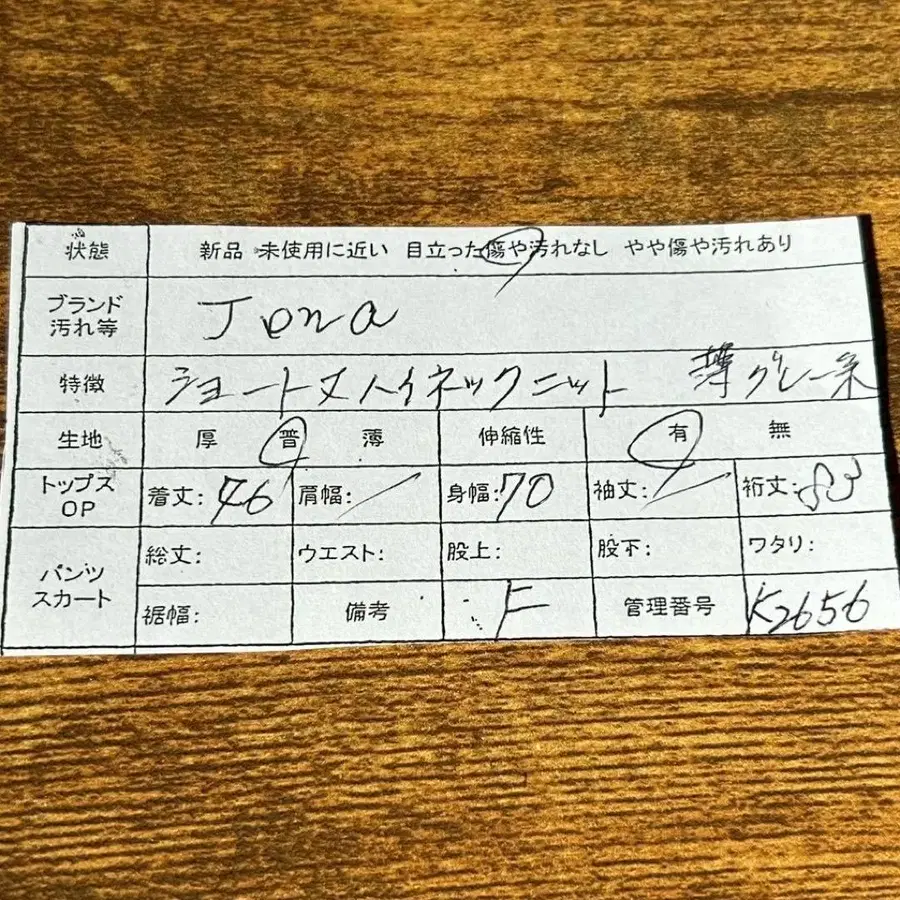 状態 新品 未使用に近い 目立った傷や汚れなし やや傷や汚れあり
ブランド
汚れ等 Jona
特徴 ショート丈ハイネックニット 薄グレー系
生地 厚 普 薄 伸縮性 有 無
トップス
OP 着丈:46 肩幅: 身幅:70 袖丈: 裄丈:83
パンツ
スカート
総丈: ウエスト: 股上: 股下: ワタリ:
裾幅: 備考 F 管理番号 K2656